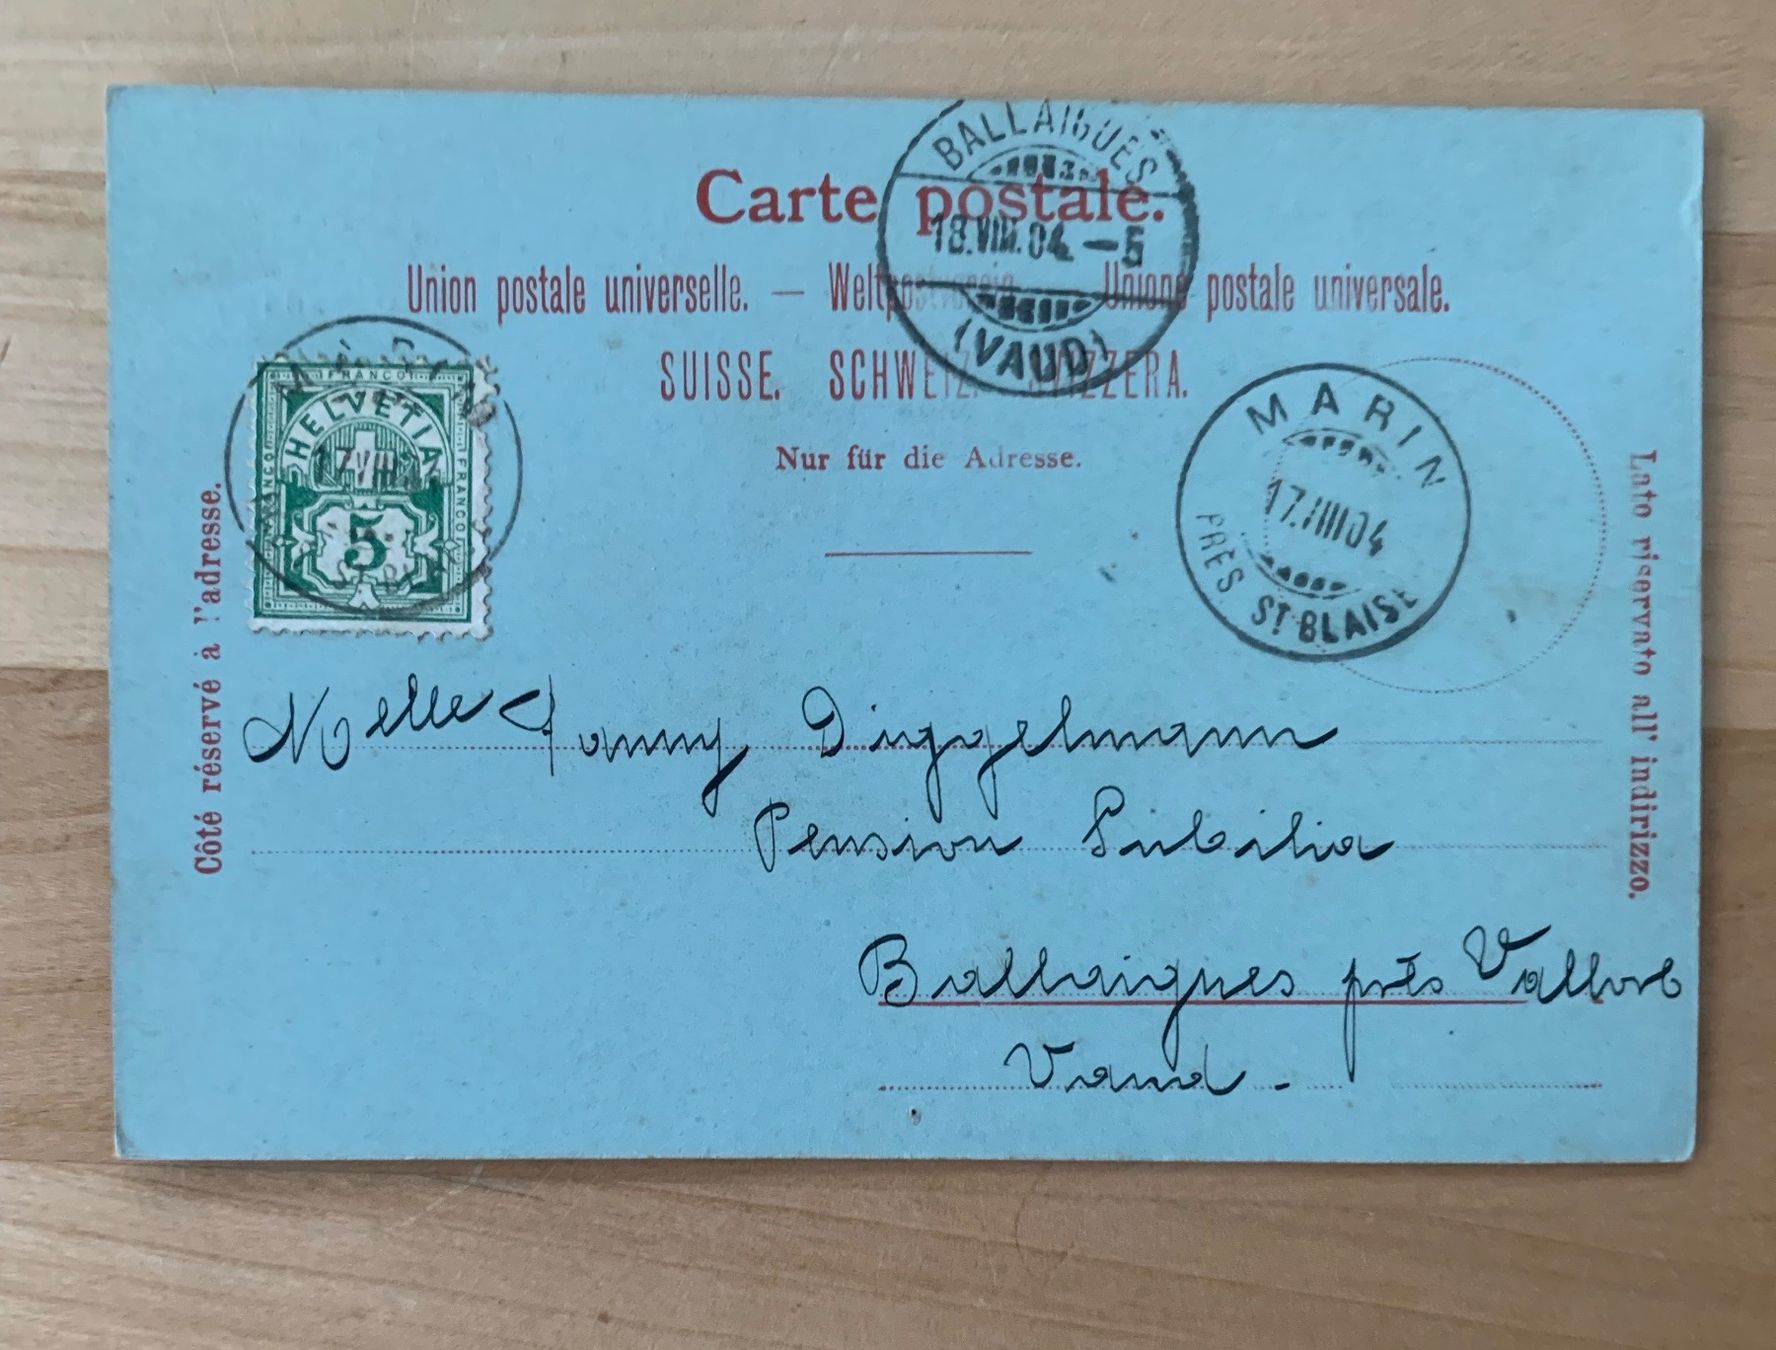 BALLAIGUES
18.VIII.04.–5
(VAUD)
Carte postale.
Union postale universelle. — Weltpostverein. — Unione postale universale.
SUISSE. SCHWEIZ. SVIZZERA.
Nur für die Adresse.
FRANCO
HELVETIA
FRANCO
FRANCO
17.VIII
5
MARIN
17.VIII04
PRÈS ST BLAISE
Côté réservé à l'adresse.
Lato riservato all' indirizzo.
Melle Fanny Diggelmann
Pension Subilia
Ballaigues près Vallorb
Vaud -